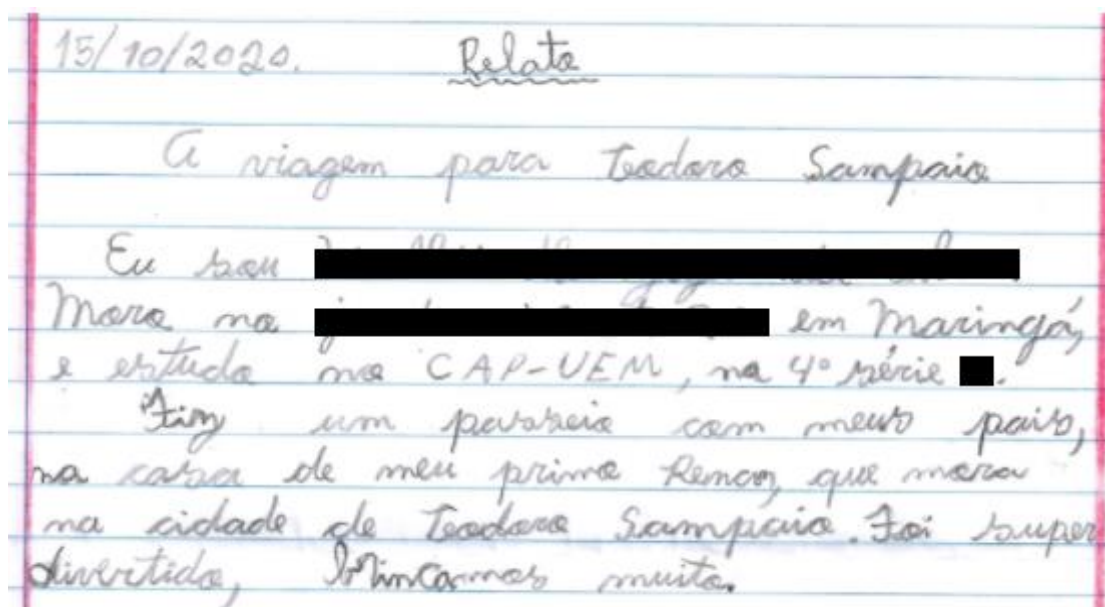 15/10/2020. Relato
A viagem para Teodoro Sampaio
Eu sou
Moro no em Maringá,
e estudo no CAP-UEM, na 4º série .
Fiz um passeio com meus pais,
na casa de meu primo que mora
na cidade de Teodoro Sampaio. Foi super
divertido, brincamos muito.